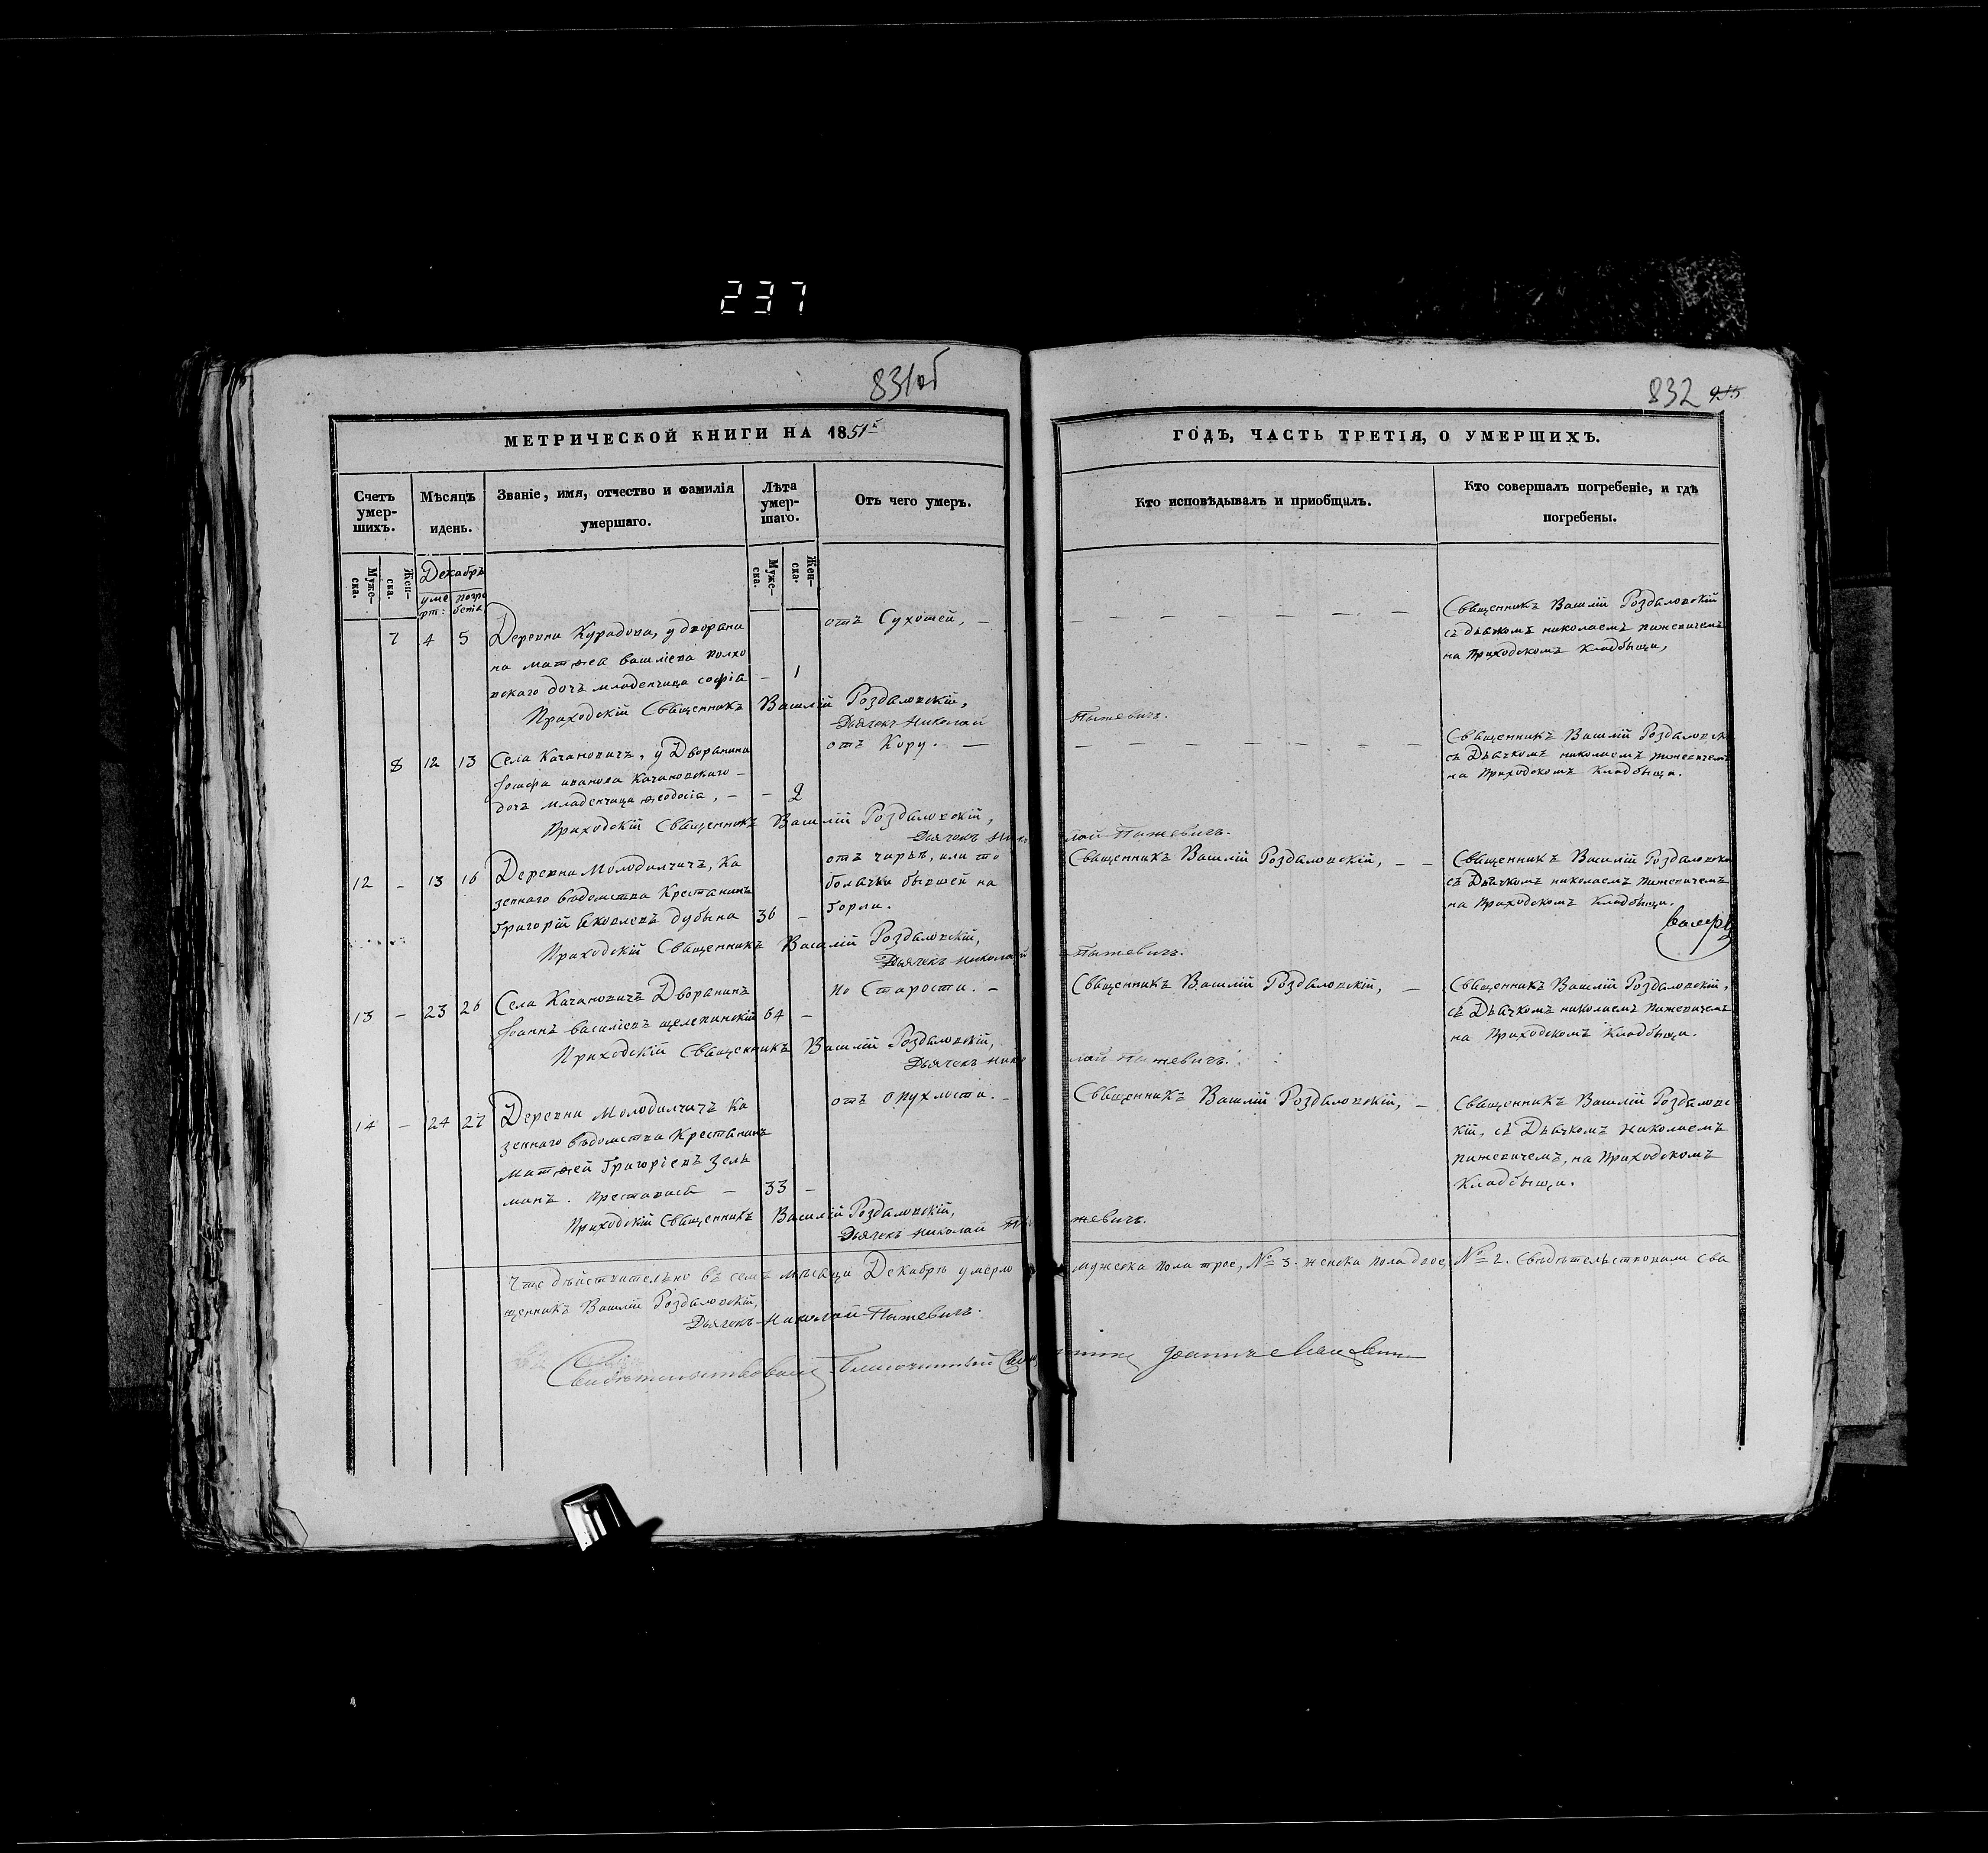 237
831об
832 915
МЕТРИЧЕСКОЙ КНИГИ НА 1851й
ГОДЪ, ЧАСТЬ ТРЕТІЯ, О УМЕРШИХЪ.
Счетъ умер-шихъ.
Мѣсяцъ идень.
Званіе, имя, отчество и фамилія умершаго.
Лѣта умер-шаго.
Отъ чего умеръ.
Кто исповѣдывалъ и приобщилъ.
Кто совершалъ погребеніе, и гдѣ погребены.
Муже-ска.
Жен-ска.
Декабрь
уме рт:
погре бета
Муже-ска.
Жен-ска.
7 4 5 Деревни Курадова, у дворяни
на Матѳея василіева полхо
вскаго дочь младенчица софіа – 1
отъ Сухотей, –
Священникъ Василій Роздяловскій
съ дьячкомъ николаемъ пыжевичемъ
на Приходскомъ Кладбыщи,
Приходскій Священникъ Василій Роздяловскій,
Дьячекъ Николай Пыжевичъ.
8 12 13 Села Качановичъ, у Дворянина
Іосифа иванова Качановскаго –
дочь младенчица ѳеодосіа, – – 2
отъ Кору. –
Священникъ Василій Роздяловск
съ Дьячкомъ николаемъ пыжевичемъ
на Приходскомъ Кладбыщи.
Приходскій Священникъ Василій Роздяловскій,
Дьячекъ Николай Пыжевичъ.
12 – 13 16 Деревни Молодилчичъ, Ка
зеннаго вѣдомства Крестянинъ
Григорій Яковлевъ дубына 36 –
отъ чиръя, или то
болячки бывшей на
Горли.
Священникъ Василій Роздяловскій, – –
Священникъ Василій Роздяловскі
съ Дьячкомъ николаемъ Пижевичемъ
на Приходскомъ Кладбыщи.
Приходскій Священникъ Василій Роздяловскій,
Дьячекъ Николай Пыжевичъ.
13 – 23 26 Села Качановичъ Дворянинъ
Іоаннъ василіевъ щепепинскій 64 –
по Старости. –
Священникъ Василій Роздяловскій, –
Священникъ Василій Роздяловскій,
съ Дьячкомъ николаемъ Пижевичемъ
на Приходскомъ Кладбыщи.
Приходскій Священникъ Василій Роздяловскій,
Дьячекъ Николай Пыжевичъ.
14 – 24 27 Деревни Молодилчичъ Ка
зеннаго вѣдомства Крестянинъ
Матѳей Григоріевъ Зель
манъ. – 33 –
отъ опухлости. –
Священникъ Василій Роздяловскій, –
Священникъ Василій Роздяловс
кій, съ Дьячкомъ Николаемъ
пижевичемъ, на Приходскомъ
Кладбыщи.
Приходскій Священникъ Василій Роздяловскій,
Дьячекъ Николай Пыжевичъ.
Что дѣйствительно въ семъ мѣсяци Декабрѣ умерло мужеска пола трое, № 3. женска пола двое, № 2. Свѣдѣтельствовали свя
щенникъ Василій Роздяловскій,
Дьячекъ Николай Пыжевичъ.
Свидѣтельствовалъ Благочинный Священникъ Іоаннъ